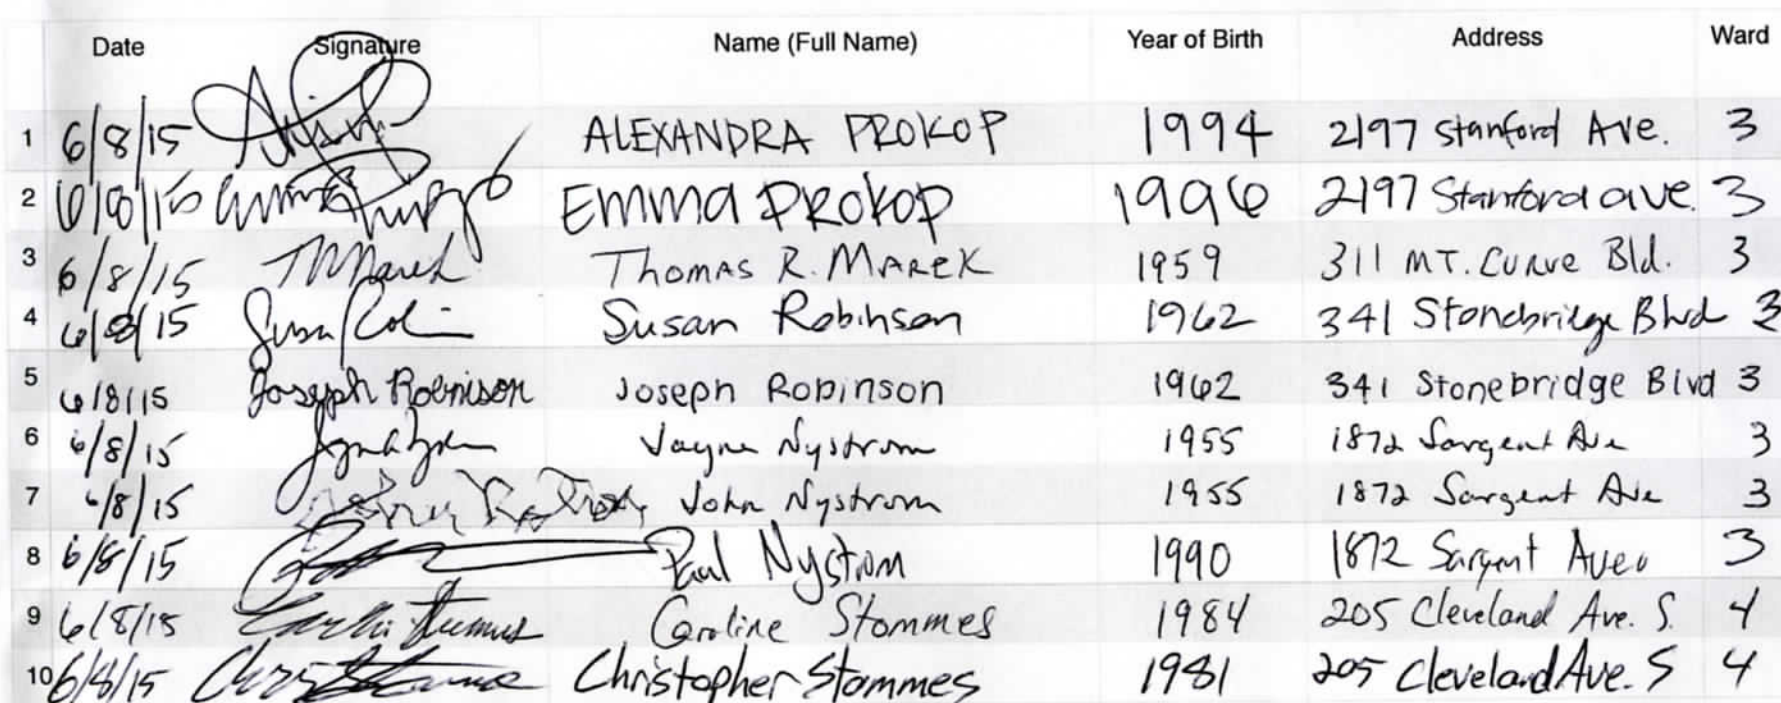 Date Signature Name (Full Name) Year of Birth Address Ward
1 6/8/15 ALEXANDRA PROKOP 1994 2197 Stanford Ave. 3
2 6/8/15 Emma Prokop EMMA PROKOP 1996 2197 Stanford ave. 3
3 6/8/15 TMMarek THOMAS R. MAREK 1959 311 MT. CURVE Bld. 3
4 6/8/15 Susan Robinson 1962 341 Stonebridge Blvd 3
5 6/8/15 Joseph Robinison Joseph Robinson 1962 341 Stonebridge Blvd 3
6 6/8/15 Jayne Nystrom 1955 1872 Sargent Ave 3
7 6/8/15 John Nystrom 1955 1872 Sargent Ave 3
8 6/8/15 Paul Nystrom 1990 1872 Sargent Ave 3
9 6/8/15 Caroline Stommes 1984 205 Cleveland Ave. S. 4
10 6/8/15 Christopher Stommes 1981 205 Cleveland Ave. S 4